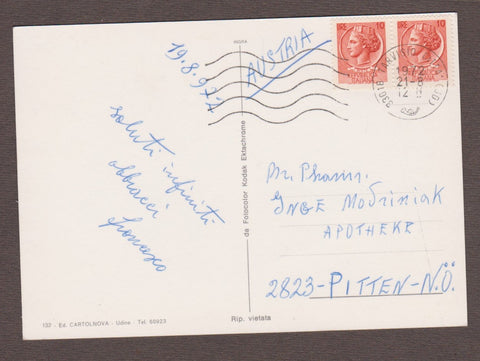 19.8.972
saluti infiniti
abbracci
INGRA
AUSTRIA
10
10
33018 TARVISIO
19-12
21-8
Mr. Pharm.
INGE
APOTHEKE
2823-PITTEN-N.Ö.
da Fotocolor Kodak Ektachrome
132 - Ed. CARTOLNOVA - Udine - Tel. 60923
Rip. vietata